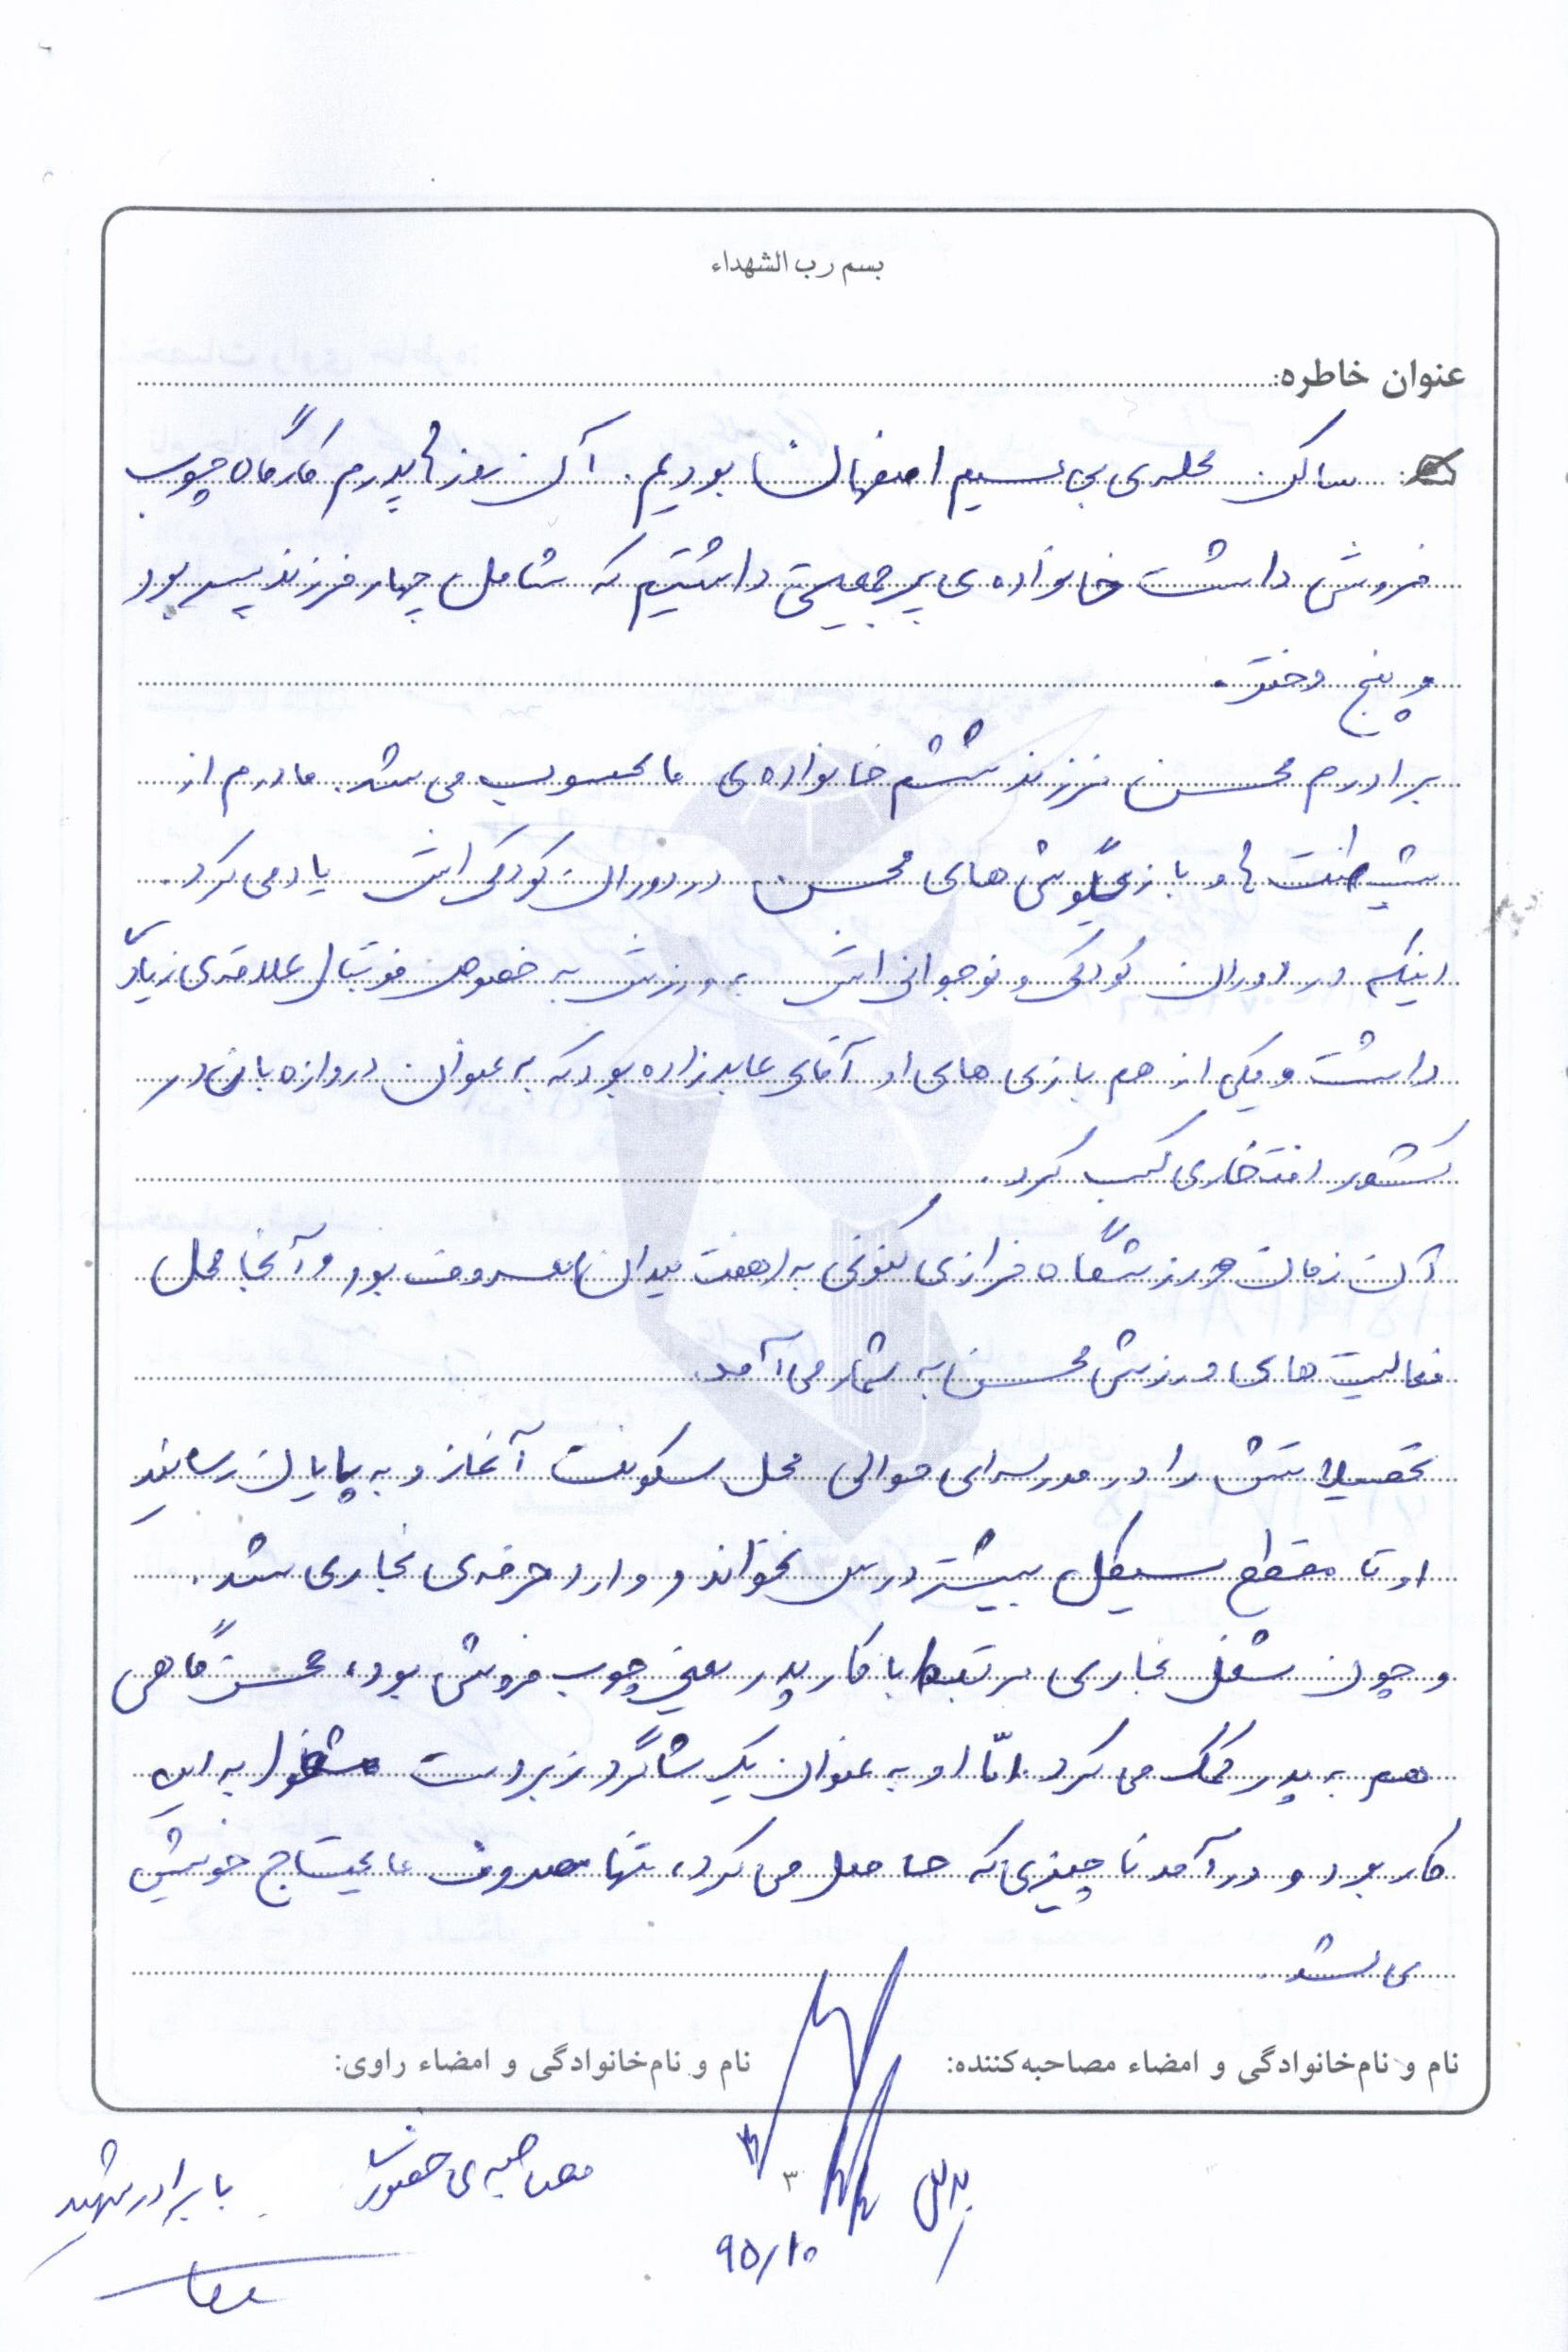 بسم رب الشهداء
عنوان خاطره:
ساکن محله‌ی بی سیم اصفهان بودیم. آن روزها پدرم کارگاه چوب
فروشی داشت خانواده‌ی پرجمعیتی داشتیم که شامل چهار فرزند پسر بود
و پنج دختر.
برادرم محسن فرزند ششم خانواده‌ی ما محسوب می‌شد. مادرم از
شیطنت‌ها و بازیگوشی‌های محسن در دوران کودکی‌اش یاد می‌کرد.
اینکه در دوران کودکی و نوجوانی‌اش به ورزش به خصوص فوتبال علاقه‌ی زیادی
داشت و یکی از هم بازی‌های او آقای عابدزاده بود که به عنوان دروازه‌بان در
کشور افتخاری کسب کرد.
آن زمان ورزشگاه فرازی کنونی به (هفت میدان) معروف بود و آنجا محل
فعالیت‌های ورزشی محسن به شمار می‌آمد.
تحصیلاتش را در مدرسه‌ای حوالی محل سکونت آغاز و به پایان رسانید
او تا مقطع سیکل بیشتر درس نخواند و وارد حرفه‌ی نجاری شد.
و چون شغل نجاری مرتبط با کار پدر یعنی چوب فروشی بود، محسن گاهی
هم به پدر کمک می‌کرد. امّا او به عنوان یک شاگرد زبردست مشغول به این
کار بود و درآمد ناچیزی که حاصل می‌کرد، تنها مصروف مایحتاج خویش
می‌شد.
نام و نام‌خانوادگی و امضاء مصاحبه‌کننده: نام و نام‌خانوادگی و امضاء راوی:
مصاحبه‌ی حضوری با برادر شهید
۳
۹۵/۱۰